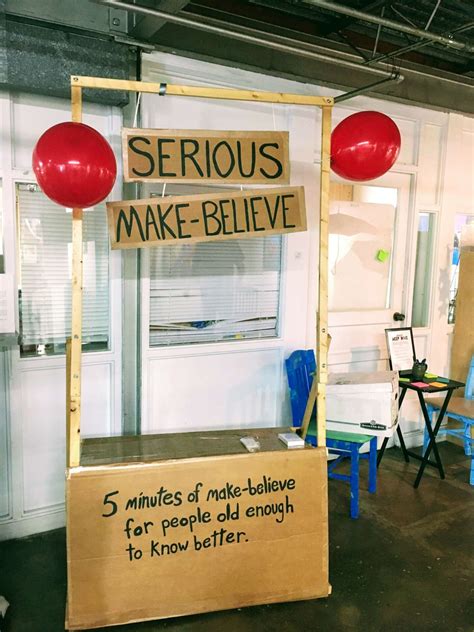 SERIOUS
MAKE-BELIEVE
5 minutes of make-believe
for people old enough
to know better.